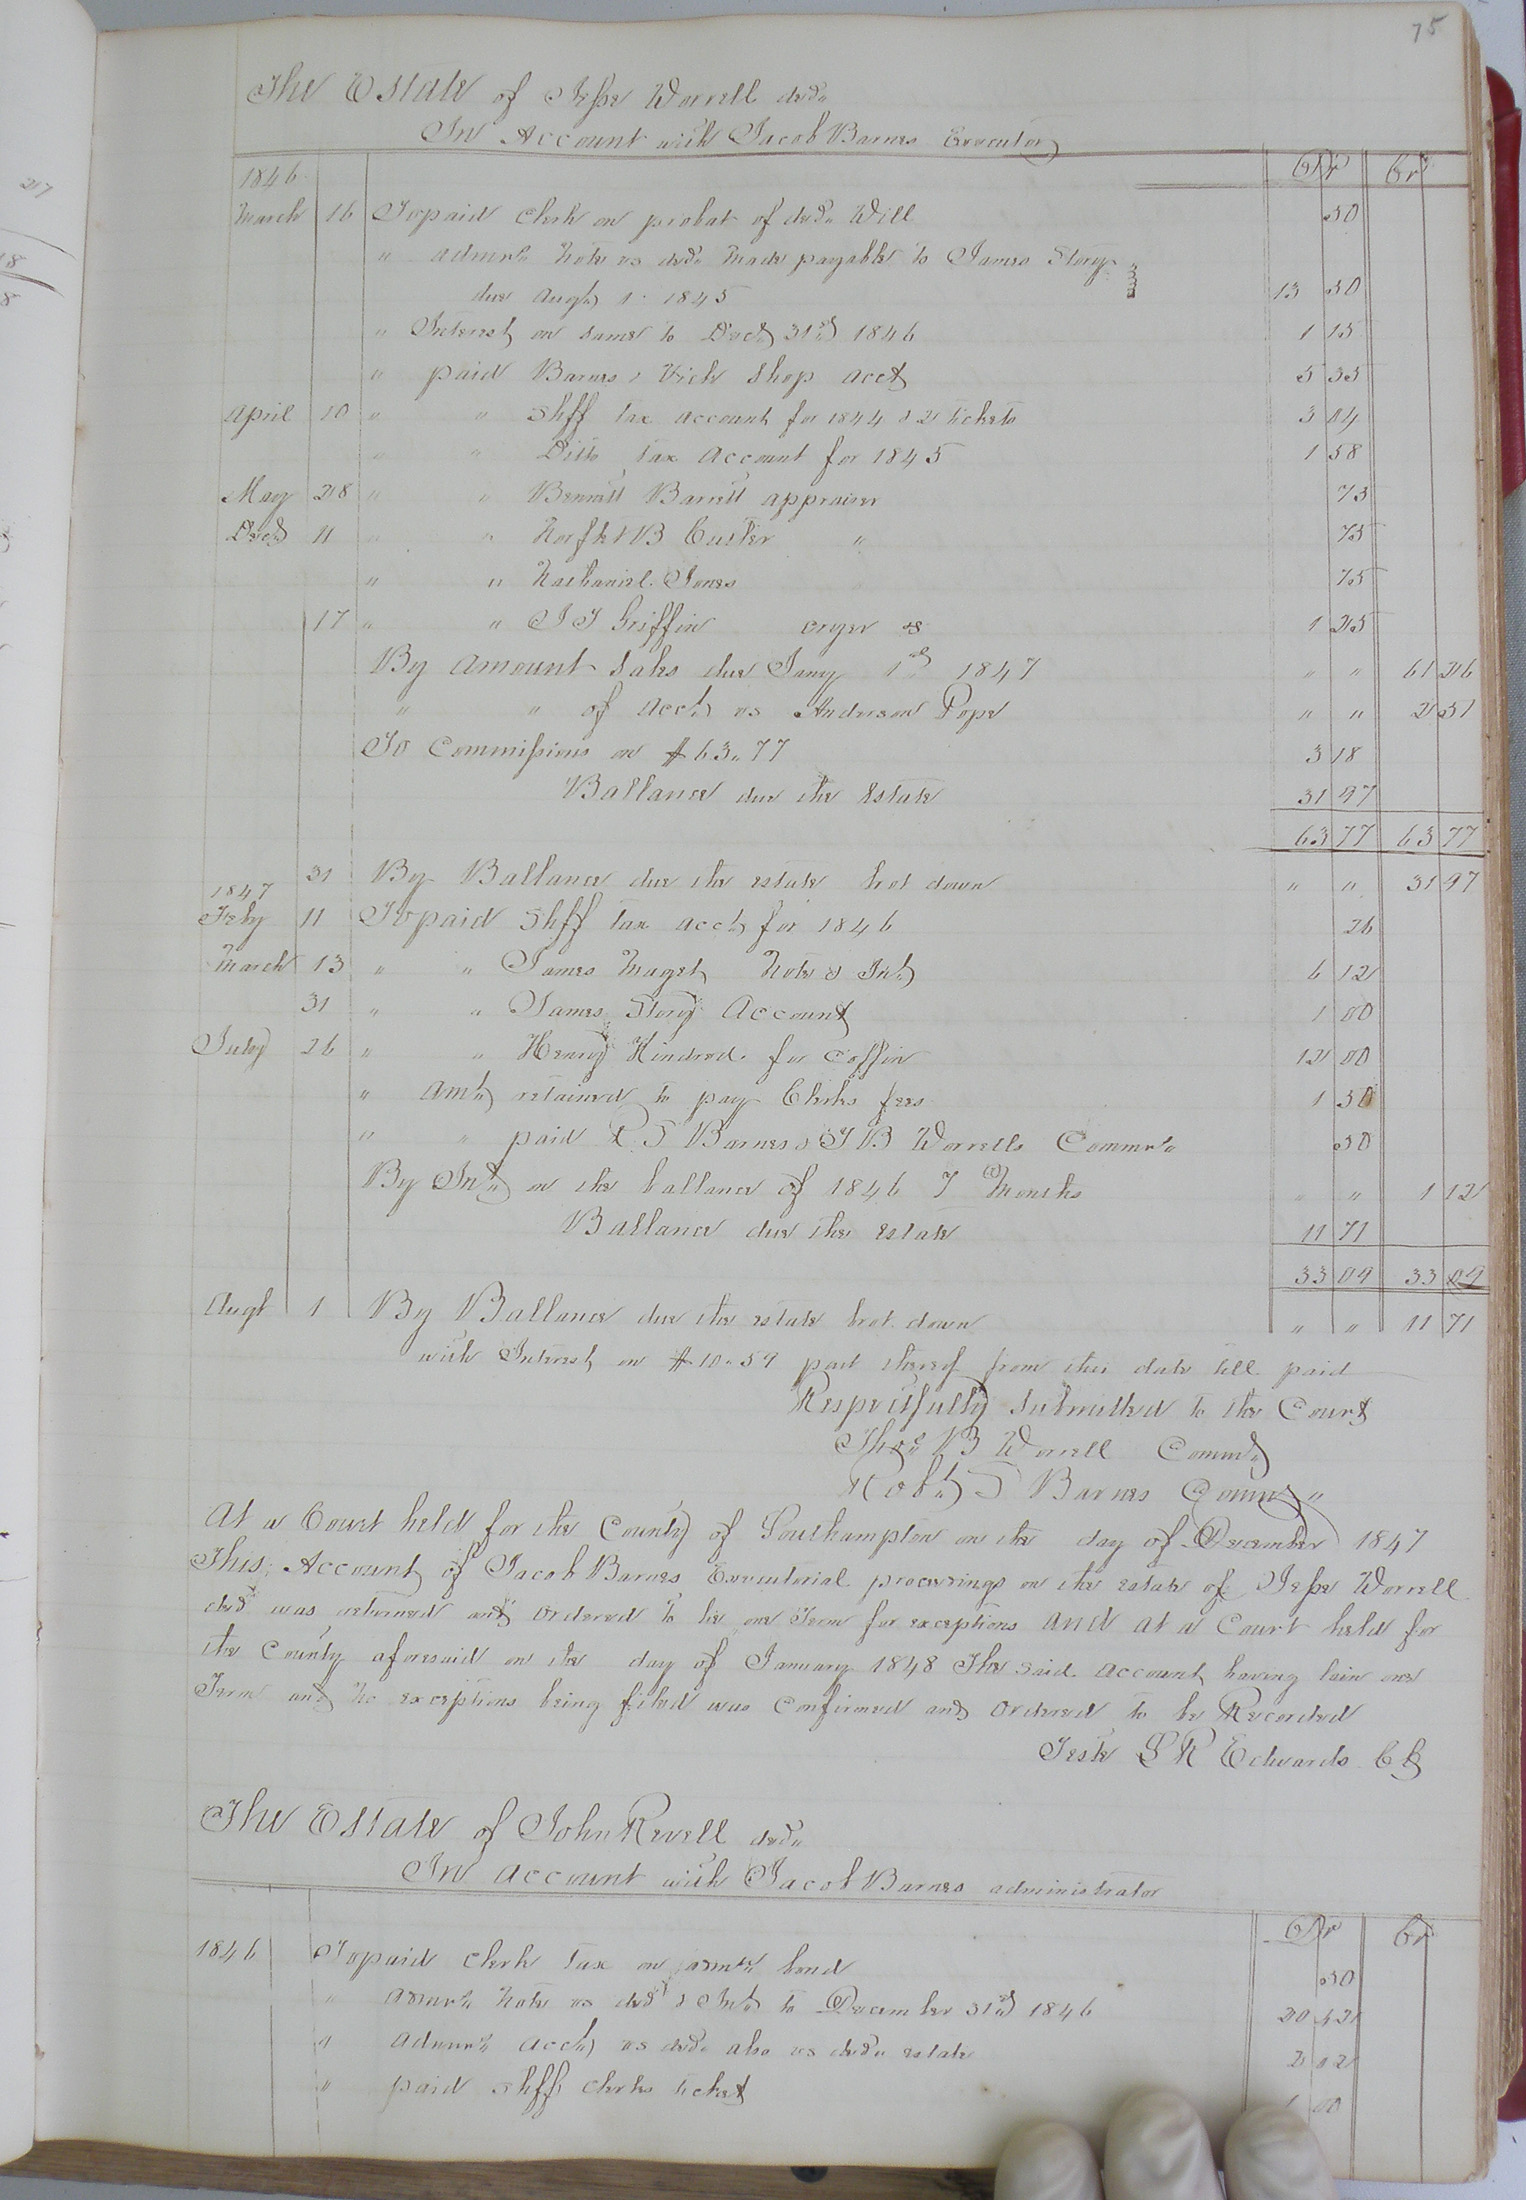 75
The Estate of Jesse Worrell decd.
In Account with Jacob Barnes Executor
Dr Cr
1846
March 16 To paid Clerk on probat of decd. Will 50
" admrs. Note vs decd. made payable to James Story
due Augt. 1. 1845 13 50
" Interest on same to Decr. 31st 1846 1 15
" paid Barnes & Vick Shop acct 5 35
April 10 " " Shff Tax account for 1844 & 2 tickets 3 04
" " Ditto Tax Account for 1845 1 58
May 28 " " Bennett Barrett appraiser 75
Decr. 11 " " B Custer " 75
" " Nathaniel Jones 75
17 " " J J Griffin cryer &c 1 25
By amount Sales due Jany 1st 1847 " " 61 26
" " of acct. vs Anderson Pope " " 2 51
To Commissions on $63.77 3 18
Ballance due the Estate 31 97
63 77 63 77
31 By Ballance due the estate brot down " " 31 97
1847
Feby 11 To paid Shff Tax acct. for 1846 26
March 13 " " James Maget Note & Int. 6 12
31 " " James Story Account 1 00
July 26 " " Henry Kindred for Coffin 12 00
" Amt. retained to pay Clerks fees 1 50
" " paid R. T Barnes & T B Worrells Commrs. 50
By Int. on the ballance of 1846 7 Months " " 1 12
Ballance due the estate 11 71
33 09 33 09
Augt 1 By Ballance due the estate brot. down " " 11 71
with Interest on $10.59 part thereof from this date till paid
Respectfully submitted to the Court
Thos. B Worrell Commr.
Robt. T Barnes Commr.
At a Court held for the County of Southampton on the day of December 1847
This Account of Jacob Barnes Executorial proceedings on the estate of Jesse Worrell
decd was returned and ordered to lie one Term for exceptions and at a Court held for
the County aforesaid on the day of January 1848 The said account having lain one
Term and no exceptions being filed was Confirmed and Ordered to be Recorded
Teste L R Edwards Ck
The Estate of John Revell decd.
In account with Jacob Barnes administrator
Dr Cr
1846 To paid Clerk tax on admrs bond 50
" admrs. Note vs decd & Int. to December 31st 1846 20 42
" admrs. acct. vs decd. also vs decds. estate 2 02
" paid Shff Clerks ticket 1 00